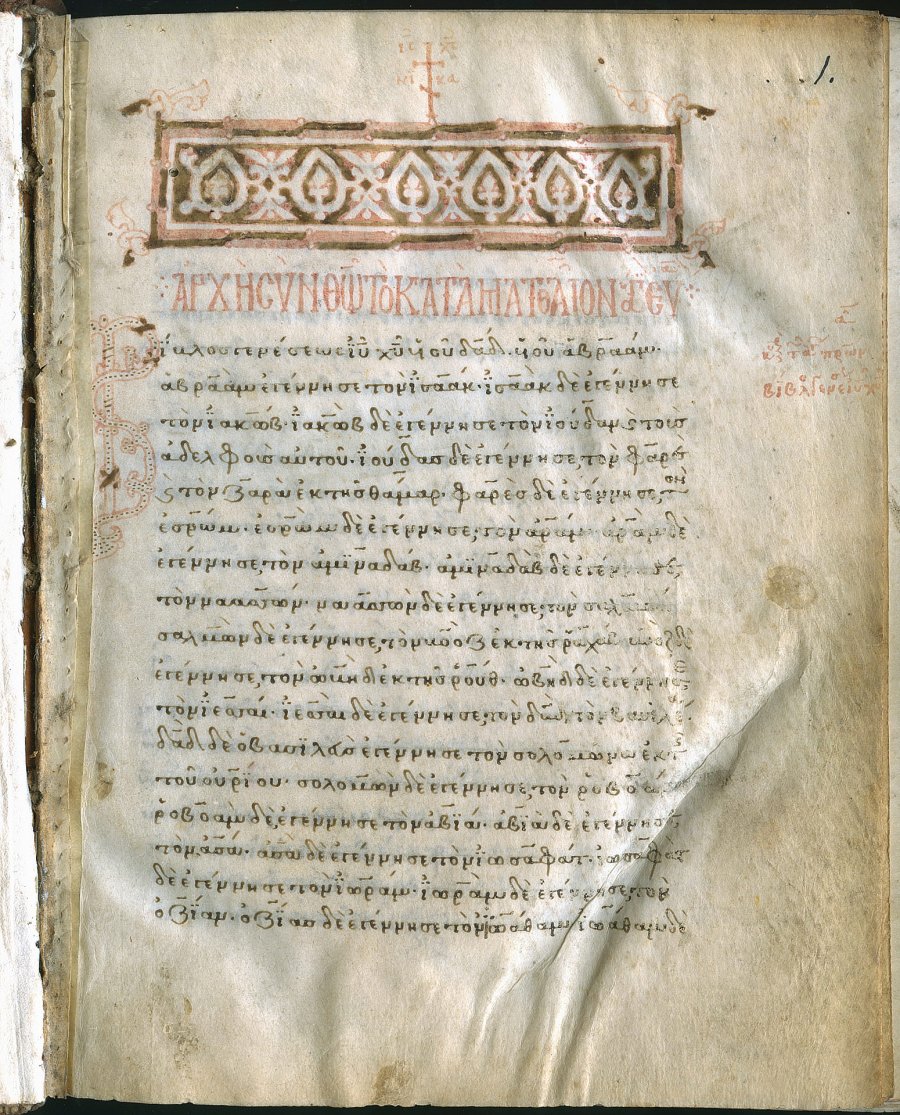 ΙΣ ΧΣ
ΝΙ ΚΑ
1.
ἈΡΧῊ ΣῪΝ ΘΩ ΤῸ ΚΑΤᾺ ΜΑΤΘΑΙΟΝ ΕΥ
Βίβλος γενέσεως ἰῦ χῦ ὑοῦ δαδ. ὑοῦ ἀβραάμ.
ἀβραὰμ ἐγέννησε τὸν ἰσαάκ. ἰσαὰκ δὲ ἐγέννησε
τὸν ἰακώβ. ἰακὼβ δὲ ἐγέννησε τὸν ἰούδαν ϗ τοὺς
ἀδελφοὺς αὐτοῦ. ἰούδας δὲ ἐγέννησε τὸν φαρὲς
ϗ τὸν ζαρὰ ἐκ τῆς θάμαρ. φαρὲς δὲ ἐγέννησε τὸν
ἐσρώμ. ἐσρὼμ δὲ ἐγέννησε τὸν ἀράμ. ἀρὰμ δὲ
ἐγέννησε τὸν ἀμϊναδάβ. ἀμϊναδὰβ δὲ ἐγέννησε
τὸν ναασών. ναασὼν δὲ ἐγέννησε τὸν σαλμών
σαλμὼν δὲ ἐγέννησε τὸν βοὸζ ἐκ τῆς ῥαχάβ. βοὸζ δὲ
ἐγέννησε τὸν ὠβὴδ ἐκ τῆς ῥούθ. ὠβὴδ δὲ ἐγέννησε
τὸν ἰεσσαί. ἰεσσαὶ δὲ ἐγέννησε τὸν δαδ τὸν βασιλέα
δαδ δὲ ὁ βασϊλεὺς ἐγέννησε τὸν σολομῶνα ἐκ τῆς
τοῦ οὐρΐου. σολομὼν δὲ ἐγέννησε τὸν ῥοβοάμ
ῥοβοὰμ δὲ ἐγέννησε τὸν ἀβϊά. ἀβϊὰ δὲ ἐγέννησε
τὸν ἀσά. ἀσὰ δὲ ἐγέννησε τὸν ἰωσαφάτ. ἰωσαφὰτ
δὲ ἐγέννησε τὸν ἰωράμ. ἰωρὰμ δὲ ἐγέννησε τὸν
ὀζΐαν. ὀζΐας δὲ ἐγέννησε τὸν ἰωάθαμ. ἰωάθαμ δὲ